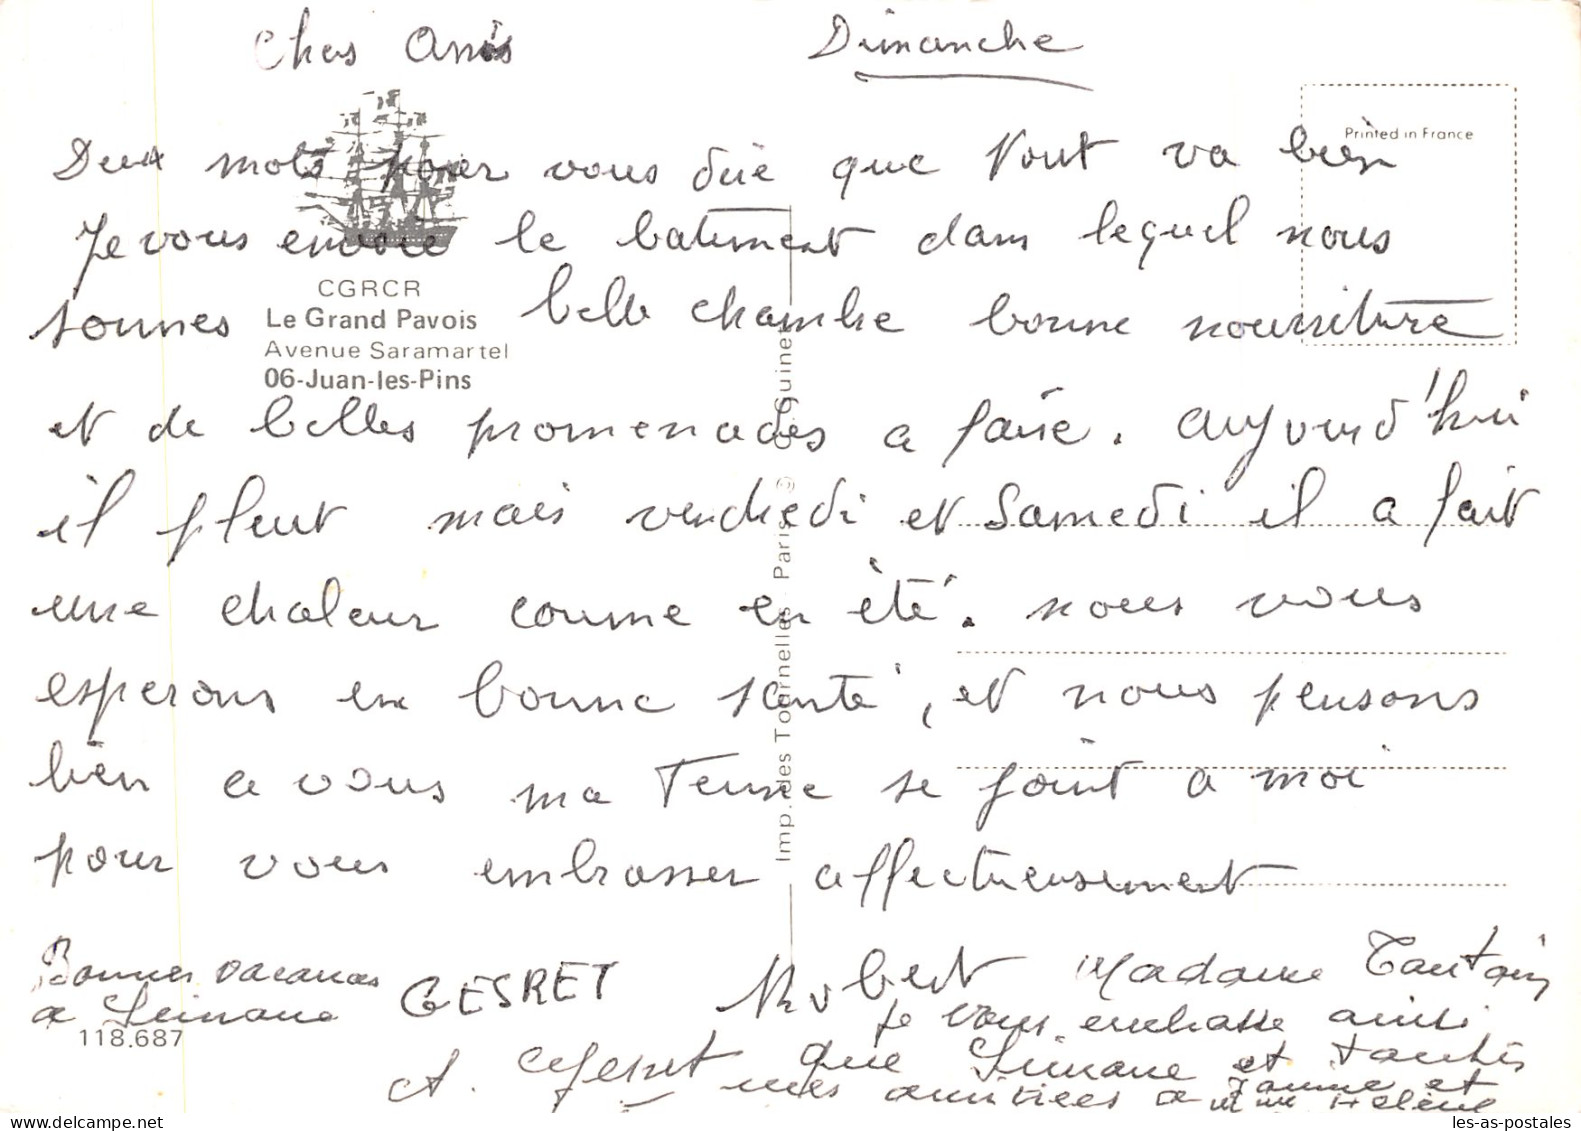 Chers Amis
Dimanche
Printed in France
Deux mots pour vous dire que tout va bien
Je vous envoie le batiment dans lequel nous
sommes belle chambre bonne nourriture
CGRCR
Le Grand Pavois
Avenue Saramartel
06-Juan-les-Pins
et de belles promenades a faire. aujourd'hui
il pleut mais vendredi et Samedi il a fait
une chaleur comme en été. nous vous
esperons en bonne santé, et nous pensons
bien a vous ma femme se joint a moi
pour vous embrasser affectueusement
Imp. des Tournelles - Paris ©
Bonnes vacances
a Simone
GESRET
Robert
Madame Tantain
je vous embrasse ainsi
que Simone et
mes amitiées a Janine et
Mme Hélène
A. Gesret
118.687
les-as-postales.com